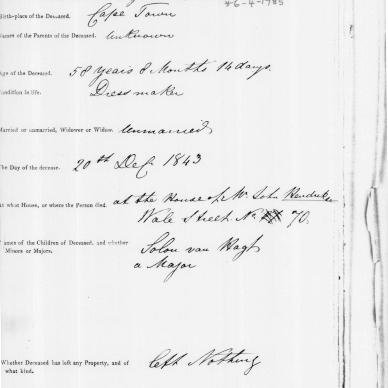 *6-4-1785
Birth-place of the Deceased. Cape Town
Names of the Parents of the Deceased. Unknown
Age of the Deceased. 58 Years 8 Months 14 days.
Condition in life. Dress maker
Married or unmarried, Widower or Widow. Unmarried
The Day of the decease. 20th Dec. 1843
At what House, or where the Person died. at the House of Mr. John
Wale Street No 70.
Names of the Children of Deceased, and whether Solon van
Minors or Majors. a Major
Whether Deceased has left any Property, and of Left Nothing
what kind.